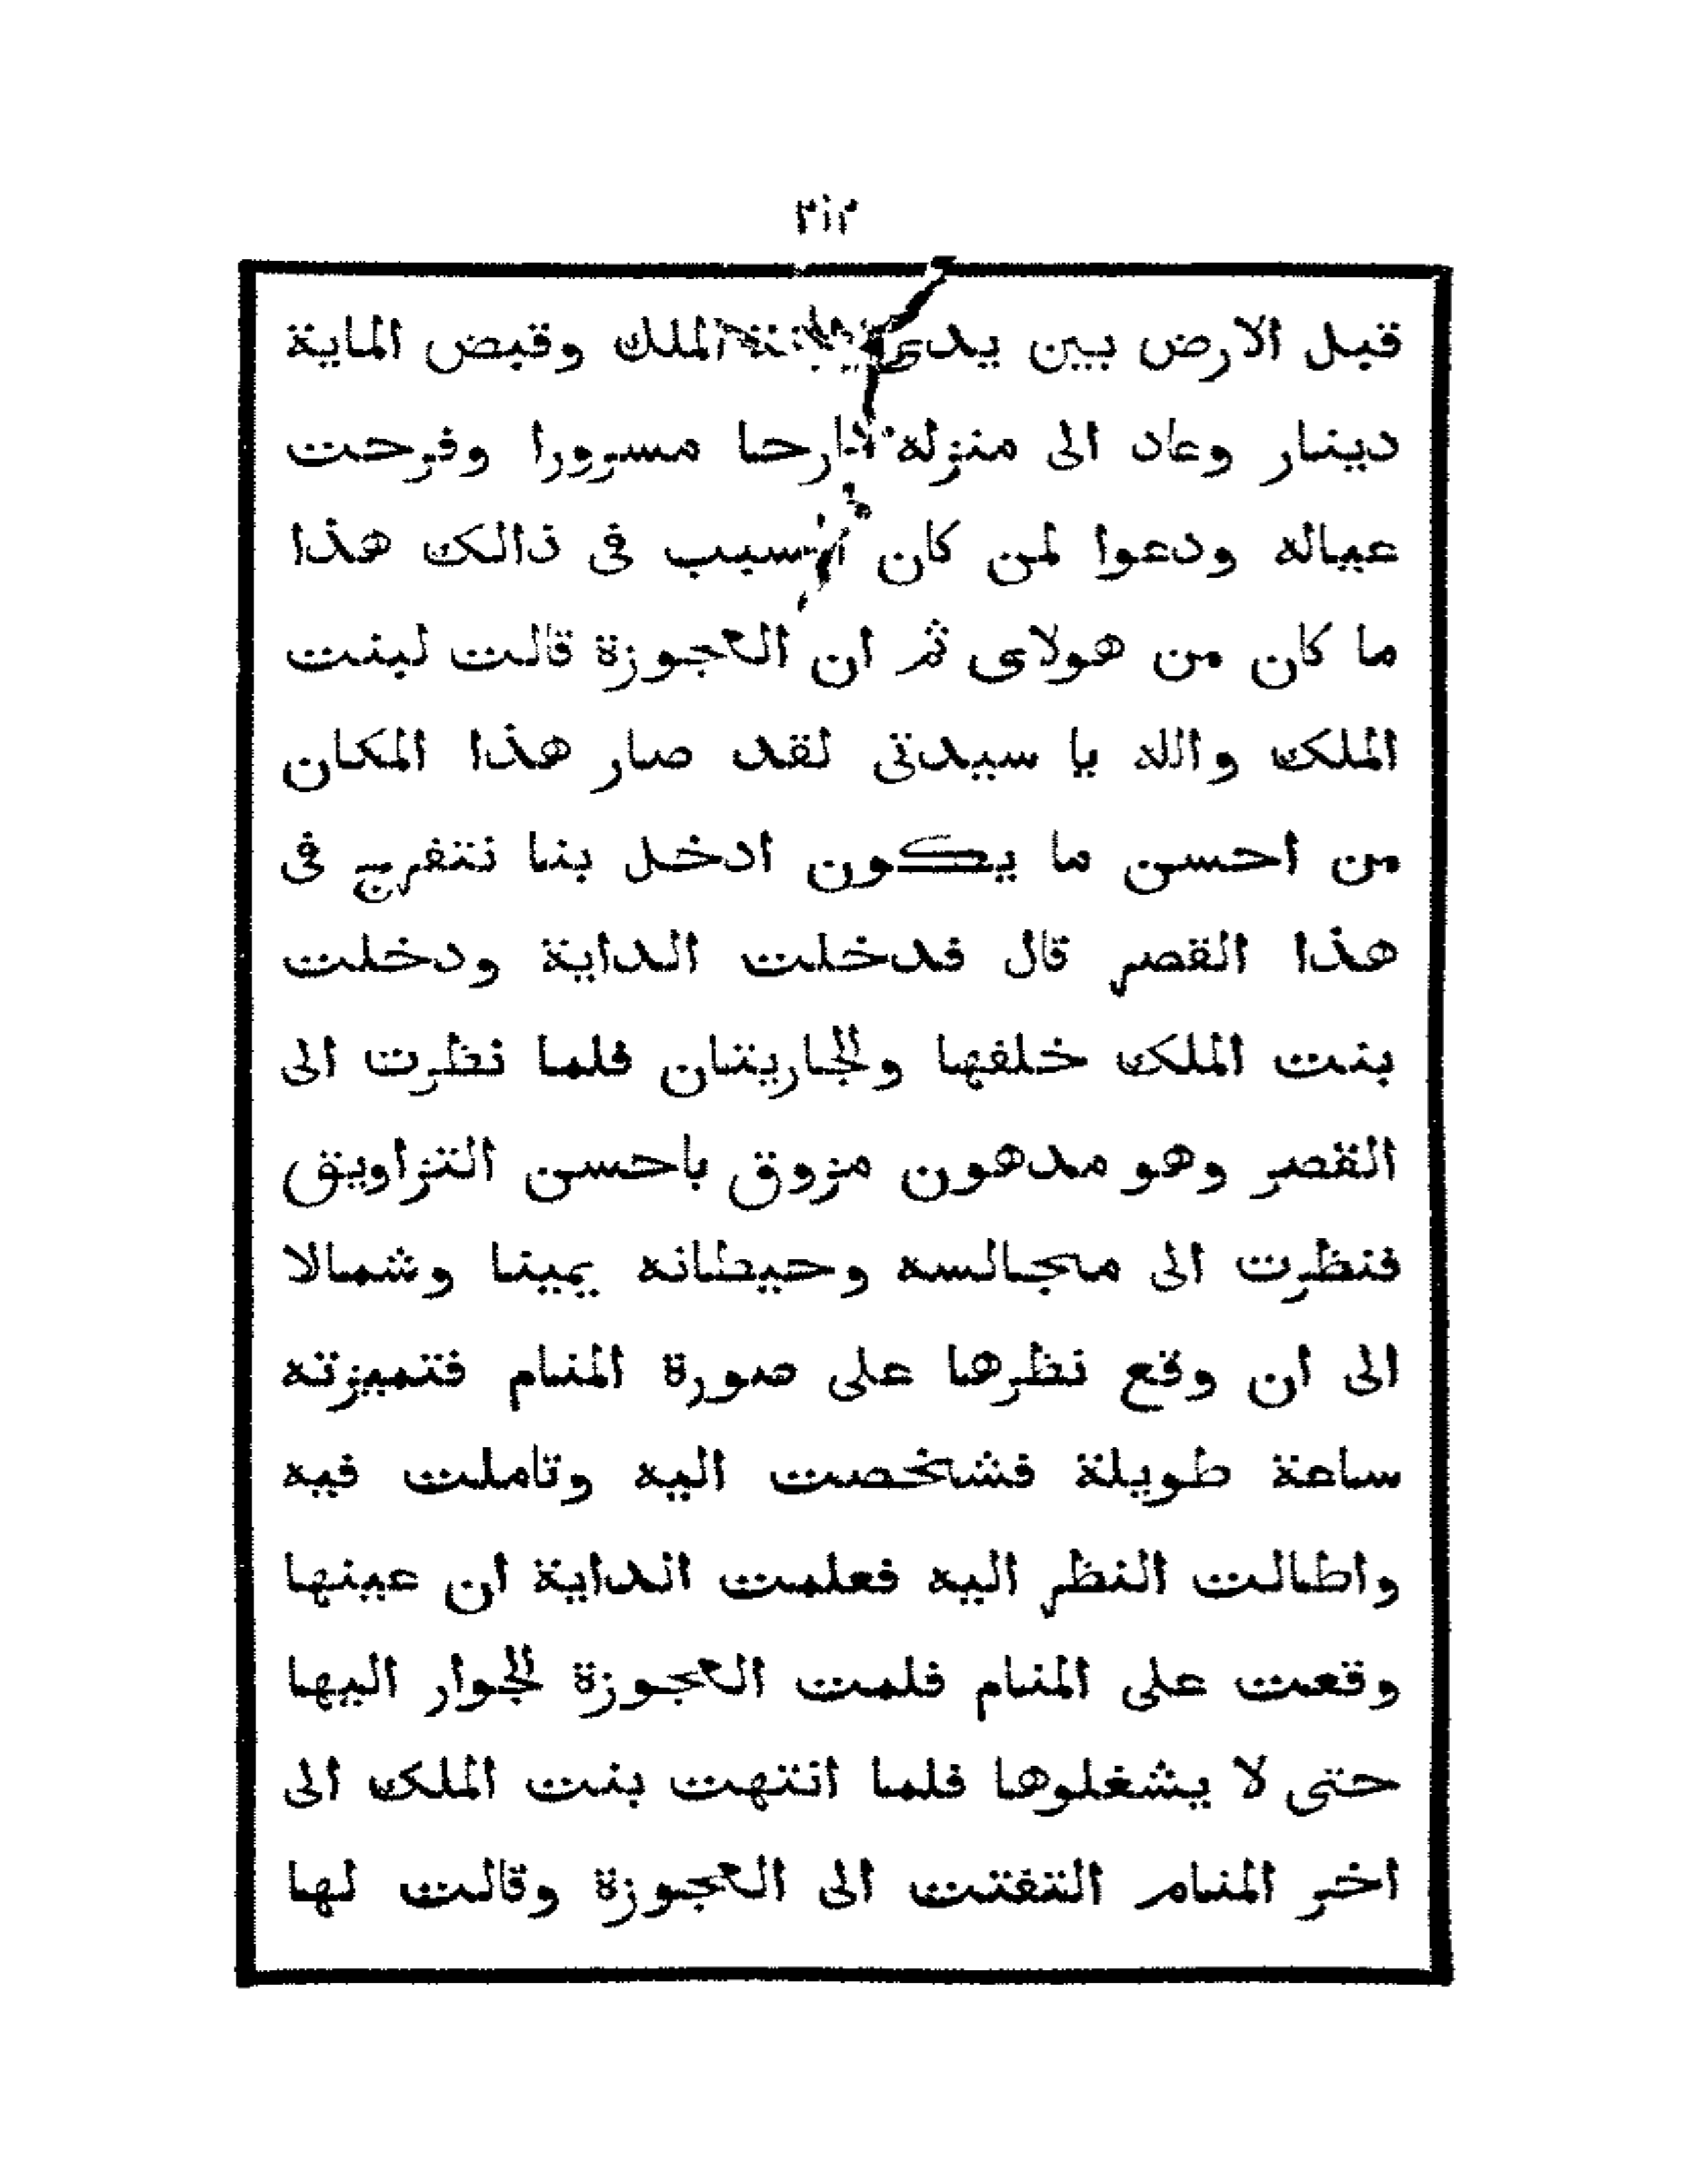 ٣١٢
قبل الارض بين يدى الملك وقبض الماية
دينار وعاد الى منزله مسرورا وفرحت
عياله ودعوا لمن كان فى ذالك هذا
ما كان من هولاى ثم ان العجوزة قالت لبنت
الملك والله يا سيدتى لقد صار هذا المكان
من احسن ما يكون ادخل بنا نتفرج فى
هذا القصر قال فدخلت الداية ودخلت
بنت الملك خلفها ولجاريتان فلما نظرت الى
القصر وهو مدهون مزوق باحسن التزاويق
فنظرت الى مجالسه وحيطانه يمينا وشمالا
الى ان وقع نظرها على صورة المنام فتميزته
ساعة طويلة فشخصت اليه وتاملت فيه
واطالت النظر اليه فعلمت الداية ان عينها
وقعت على المنام فلمت العجوزة لجوار اليها
حتى لا يشغلوها فلما انتهت بنت الملك الى
اخر المنام التفتت الى العجوزة وقالت لها